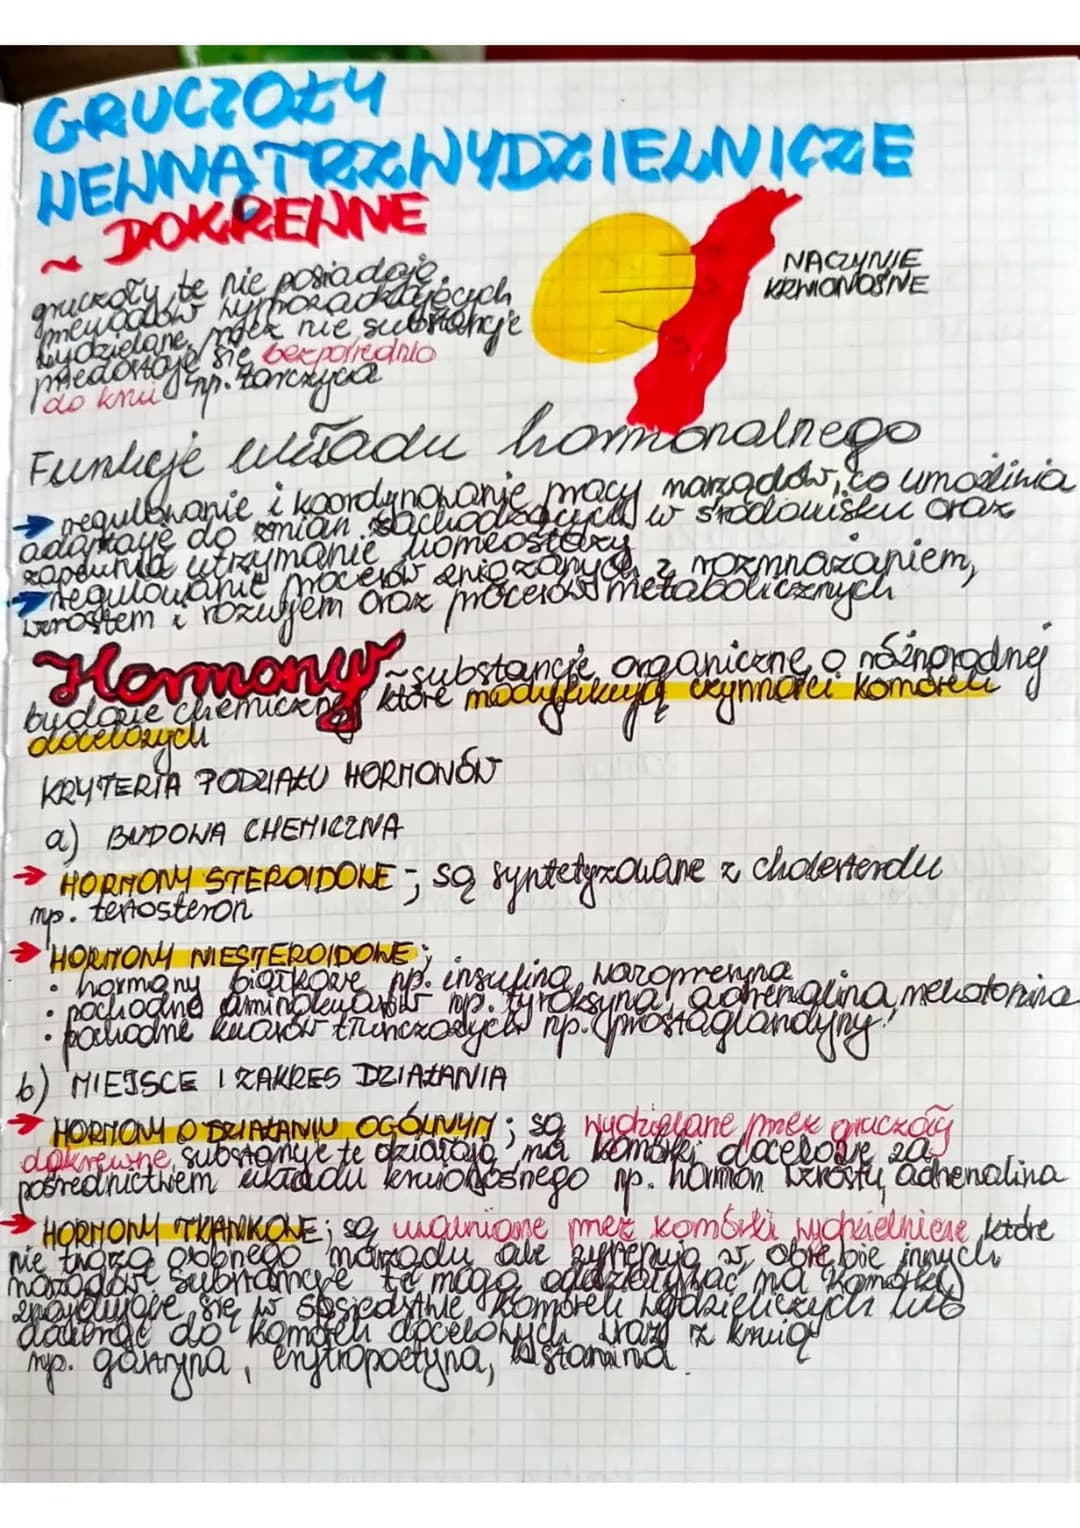 GRUCZOŁY
WEWNĄTRZWYDZIELNICZE
~ DOKREWNE
gruczoły te nie posiadają
przewodów wyprowadzających
wydzielane przez nie substancje
przedostają się bezpośrednio
do krwi np. tarczyca
NACZYNIE
KRWIONOŚNE
Funkcje układu hormonalnego
→ regulowanie i koordynowanie pracy narządów, co umożliwia
adaptację do zmian zachodzących w środowisku oraz
zapewnia utrzymanie homeostazy
→ regulowanie procesów związanych z rozmnażaniem,
wzrostem i rozwojem oraz procesów metabolicznych
Hormony ~ substancje organiczne o różnorodnej
budowie chemicznej które modyfikują czynności komórek
docelowych
KRYTERIA PODZIAŁU HORMONÓW
a) BUDOWA CHEMICZNA
→ HORMONY STEROIDOWE - są syntetyzowane z cholesterolu
np. testosteron
→ HORMONY NIESTEROIDOWE;
• hormony białkowe np. insulina, wazopresyna
• pochodne aminokwasów np. tyroksyna, adrenalina, melatonina
• pochodne kwasów tłuszczowych np. prostaglandyny
b) MIEJSCE I ZAKRES DZIAŁANIA
→ HORMONY O DZIAŁANIU OGÓLNYM; są wydzielane przez gruczoły
dokrewne, substancje te działają na komórki docelowe za
pośrednictwem układu krwionośnego np. hormon wzrostu, adrenalina
→ HORMONY TKANKOWE; są uwalniane przez komórki wydzielnicze, które
nie tworzą osobnego narządu ale występują w obrębie innych
narządów substancje te mogą oddziaływać na komórki
znajdujące się w sąsiedztwie komórek lub
docierać do komórek docelowych wraz z krwią
np. gastryna, erytropoetyna, histamina.